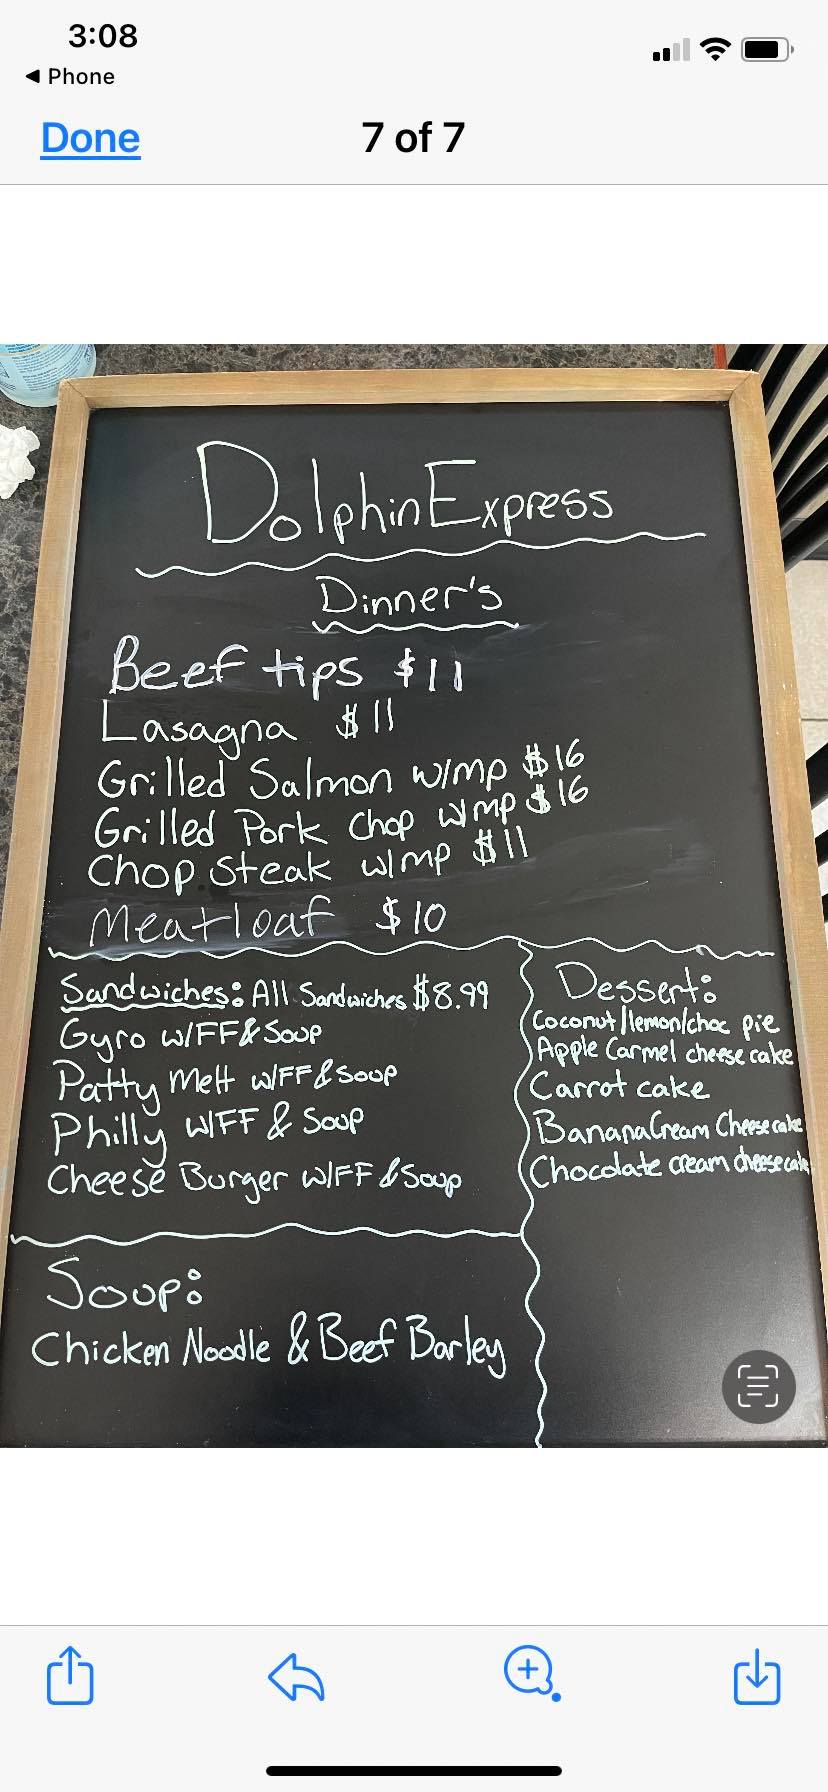 3:08
Phone
Done
7 of 7
Dolphin Express
Dinner's
Beef tips $11
Lasagna $11
Grilled Salmon w/mp $16
Grilled Pork Chop w/mp $16
Chop Steak w/mp $11
Meatloaf $10
Sandwiches: All Sandwiches $8.99
Gyro w/FF & Soup
Patty Melt w/FF & Soup
Philly w/FF & Soup
Cheese Burger w/FF & Soup
Dessert:
Coconut/lemon/choc pie
Apple Carmel cheese cake
Carrot cake
Banana Cream Cheese cake
Chocolate cream cheese cake
Soup:
Chicken Noodle & Beef Barley